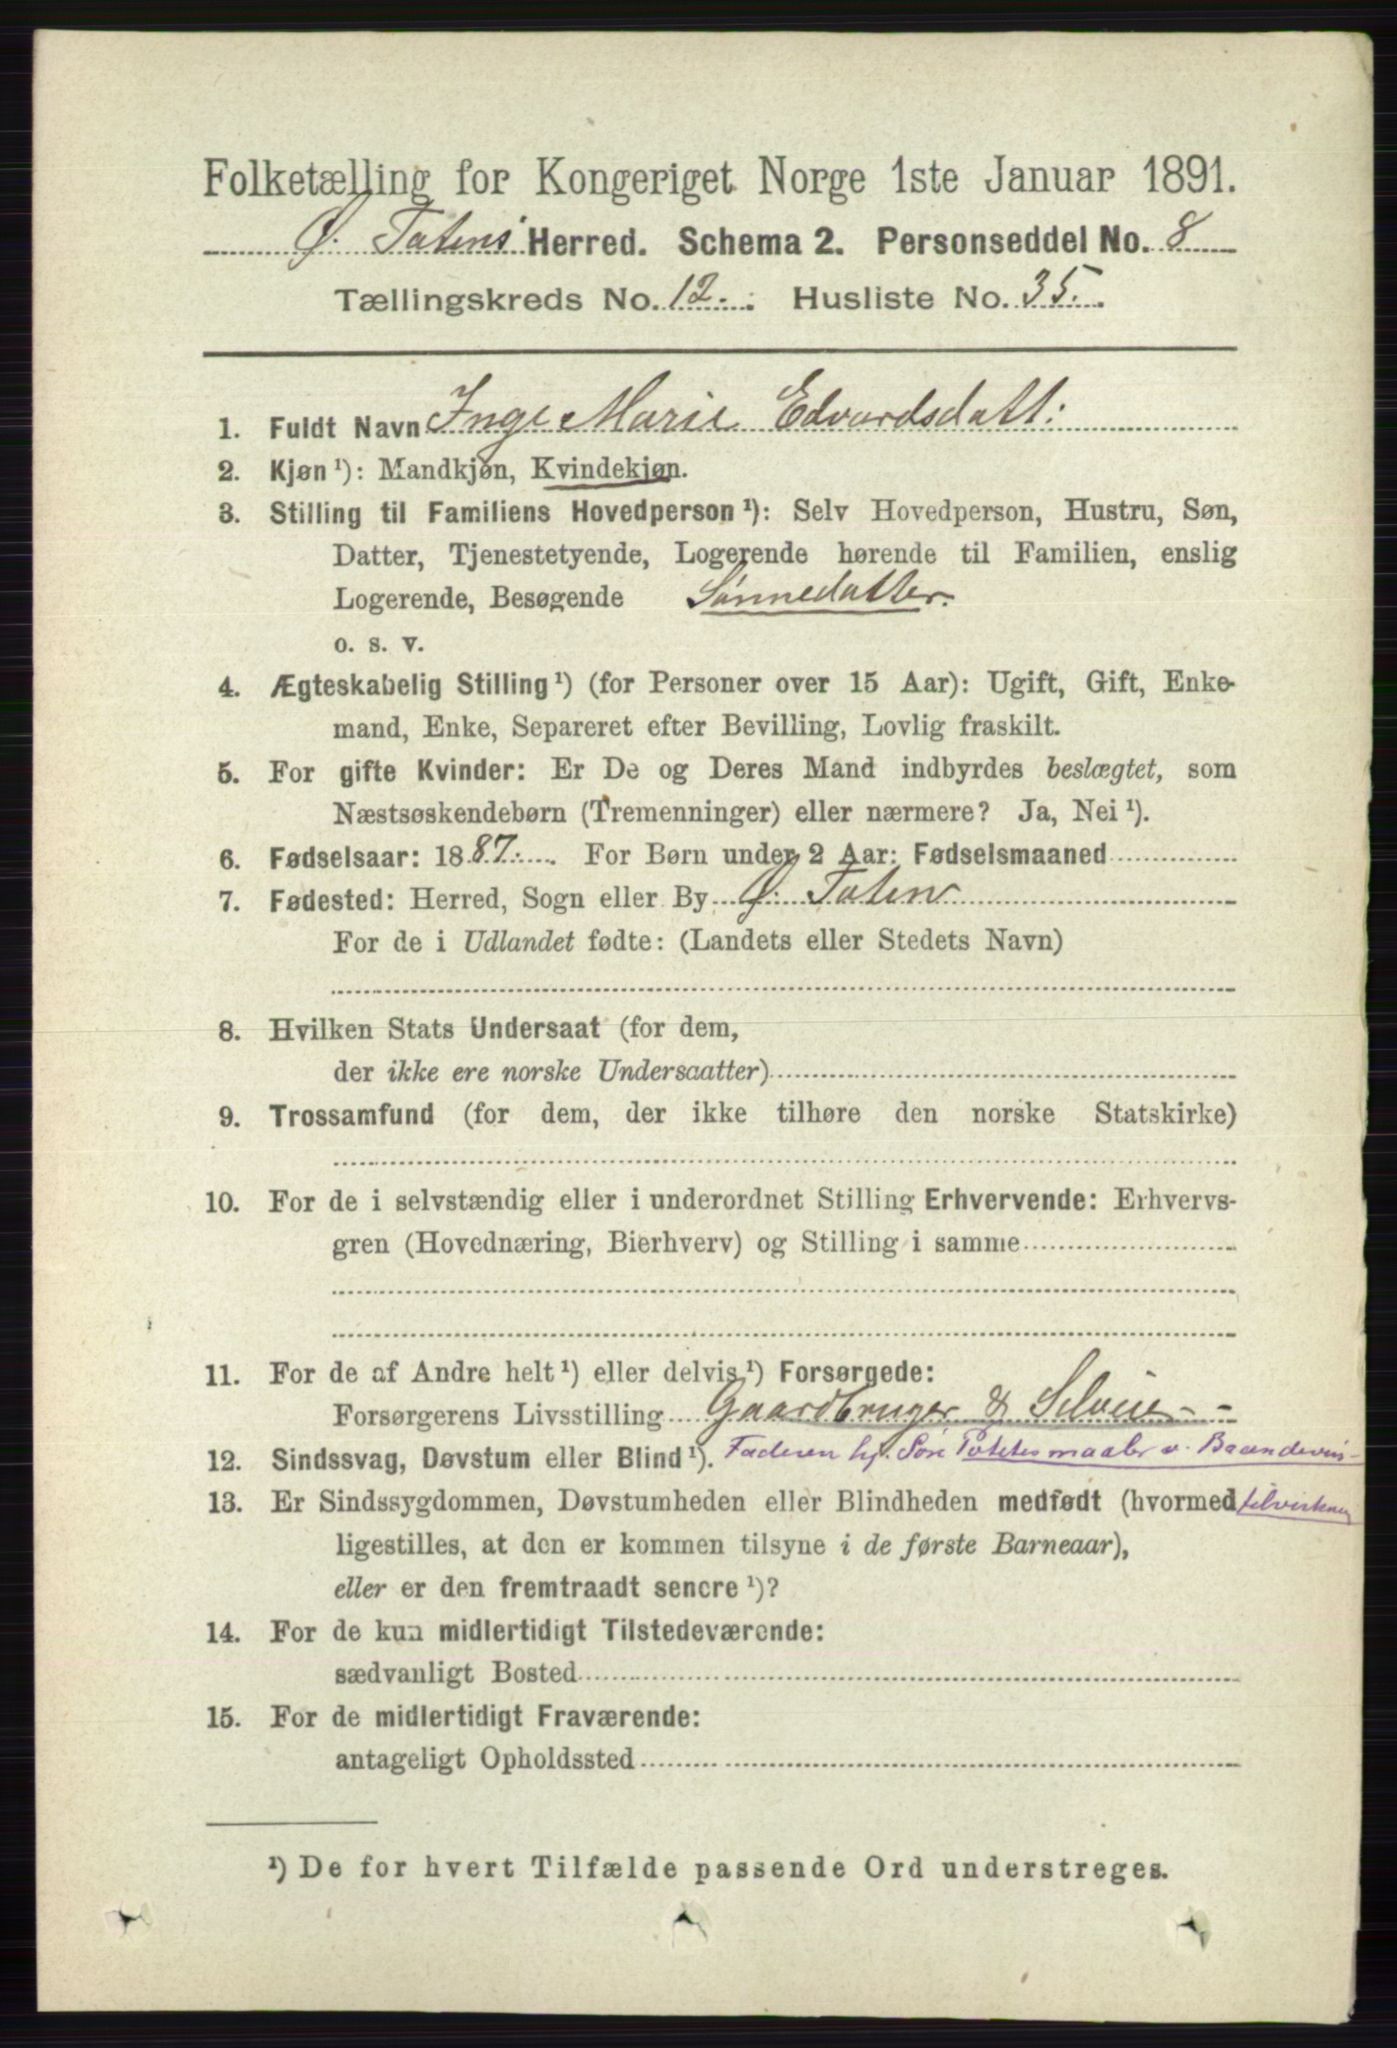 Folketælling for Kongeriget Norge 1ste Januar 1891.
Ø. Totens Herred. Schema 2. Personseddel No. 8
Tællingskreds No. 12. Husliste No. 35.
1. Fuldt Navn Inge Marie Edvardsdatt:
2. Kjøn ¹): Mandkjøn, Kvindekjøn.
3. Stilling til Familiens Hovedperson ¹): Selv Hovedperson, Hustru, Søn,
Datter, Tjenestetyende, Logerende hørende til Familien, enslig
Logerende, Besøgende Sønnedatter.
o. s. v.
4. Ægteskabelig Stilling ¹) (for Personer over 15 Aar): Ugift, Gift, Enke-
mand, Enke, Separeret efter Bevilling, Lovlig fraskilt.
5. For gifte Kvinder: Er De og Deres Mand indbyrdes beslægtet, som
Næstsøskendebørn (Tremenninger) eller nærmere? Ja, Nei ¹).
6. Fødselsaar: 1887. For Børn under 2 Aar: Fødselsmaaned
7. Fødested: Herred, Sogn eller By Ø. Toten
For de i Udlandet fødte: (Landets eller Stedets Navn)
8. Hvilken Stats Undersaat (for dem,
der ikke ere norske Undersaatter)
9. Trossamfund (for dem, der ikke tilhøre den norske Statskirke)
10. For de i selvstændig eller i underordnet Stilling Erhvervende: Erhvervs-
gren (Hovednæring, Bierhverv) og Stilling i samme
11. For de af Andre helt ¹) eller delvis ¹) Forsørgede:
Forsørgerens Livsstilling Gaardbruger & Selveier
12. Sindssvag, Døvstum eller Blind ¹). Faderen
13. Er Sindssygdommen, Døvstumheden eller Blindheden medfødt (hvormed
ligestilles, at den er kommen tilsyne i de første Barneaar),
eller er den fremtraadt senere ¹)?
14. For de kun midlertidigt Tilstedeværende:
sædvanligt Bosted
15. For de midlertidigt Fraværende:
antageligt Opholdssted
¹) De for hvert Tilfælde passende Ord understreges.